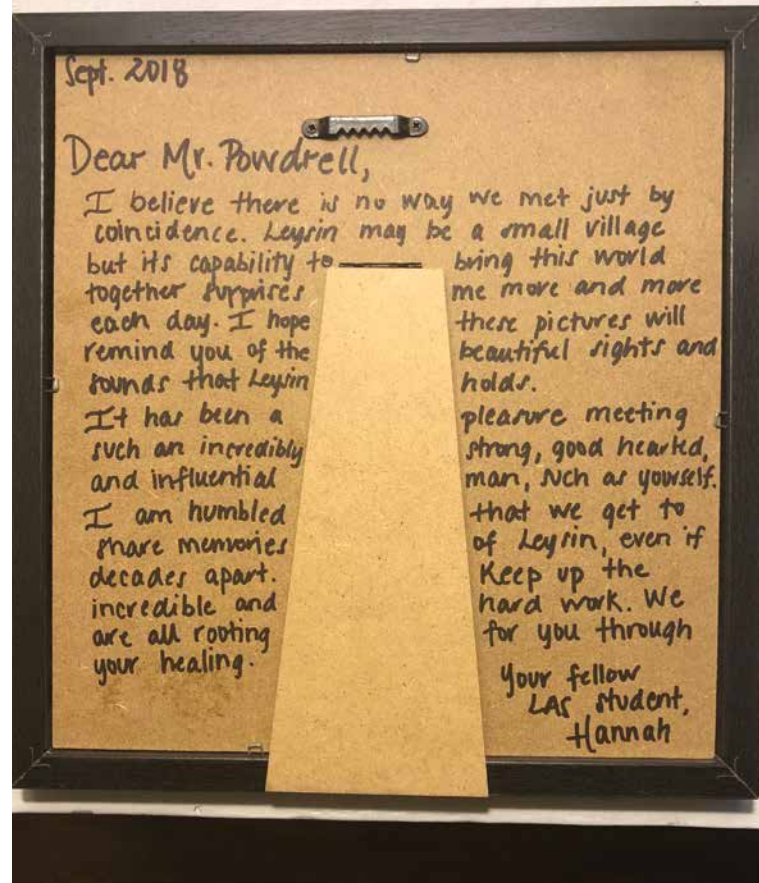 Sept. 2018
Dear Mr. Powdrell,
I believe there is no way we met just by
coincidence. Leysin may be a small village
but its capability to bring this world
together surprises me more and more
each day. I hope these pictures will
remind you of the beautiful sights and
sounds that Leysin holds.
It has been a pleasure meeting
such an incredibly strong, good hearted,
and influential man, such as yourself.
I am humbled that we get to
share memories of Leysin, even if
decades apart. Keep up the
incredible and hard work. We
are all rooting for you through
your healing.
Your fellow
LAS student,
Hannah